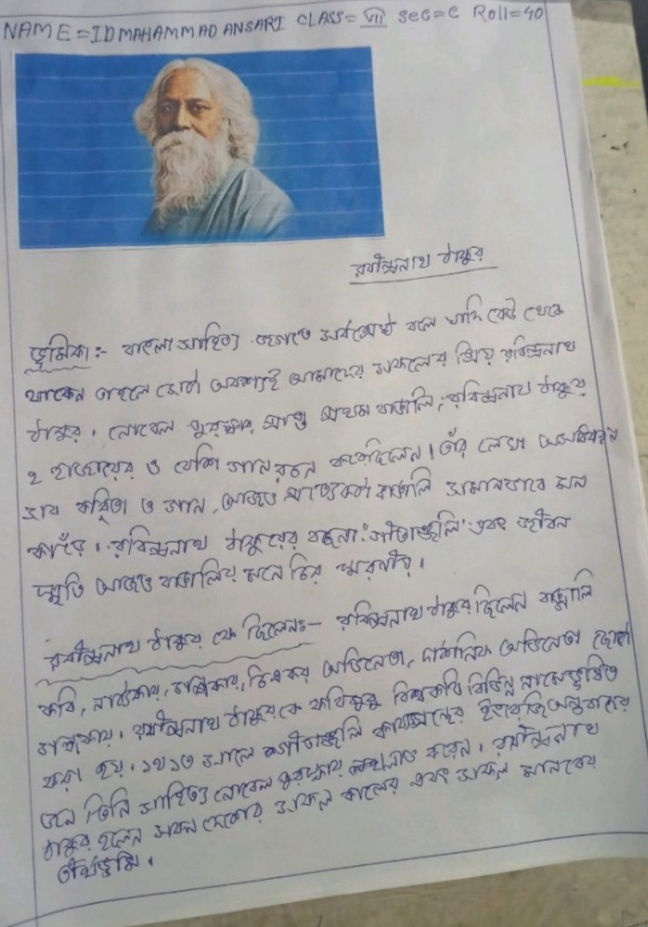 NAME=IDMAHAMMAD ANSARI CLASS= VII sec=c Roll=40
রবীন্দ্রনাথ ঠাকুর
ভূমিকা:- বাংলা সাহিত্য জগতে সর্বশ্রেষ্ঠ বলে যদি কেউ থেকে
থাকেন তাহলে সেটা অবশ্যই আমাদের সকলের প্রিয় রবিন্দ্রনাথ
ঠাকুর। নোবেল পুরস্কার প্রাপ্ত প্রথম বাঙালি, রবিন্দ্রনাথ ঠাকুর
২ হাজারের ও বেশি গান রচনা করেছিলেন। তাঁর লেখা
কবিতা ও গান, আজও প্রত্যেকটা বাঙালি সমানভাবে মন
কাঁড়ে। রবিন্দ্রনাথ ঠাকুরের রচনা "গীতাঞ্জলি" এবং জীবন
স্মৃতি আজও বাঙালির মনে চির স্মরণীয়।
রবীন্দ্রনাথ ঠাকুর কে ছিলেন:- রবিন্দ্রনাথ ঠাকুর ছিলেন বাঙ্গালি
কবি, নাট্যকার, চিত্রকর, অভিনেতা, দার্শনিক অভিনেতা ছোটো
গল্পকার। রবীন্দ্রনাথ ঠাকুরকে কবিগুরু বিশ্বকবি বিভিন্ন নামে ভূষিত
করা হয়। ১৯১৩ সালে গীতাঞ্জলি কাব্যগ্রন্থের ইংরেজি অনুবাদের
জন্য তিনি সাহিত্য নোবেল পুরস্কার লাভ করেন। রবীন্দ্রনাথ
ঠাকুর হলেন সকল দেশের সকল কালের এবং সকল মানবের
তীর্থভূমি।